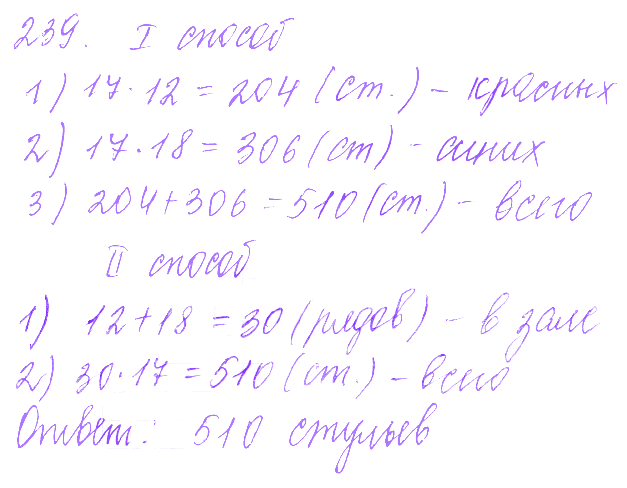 239. I способ
1) 17 · 12 = 204 (ст.) - красных
2) 17 · 18 = 306 (ст) - синих
3) 204 + 306 = 510 (ст.) - всего
II способ
1) 12 + 18 = 30 (рядов) - в зале
2) 30 · 17 = 510 (ст.) - всего
Ответ: 510 стульев